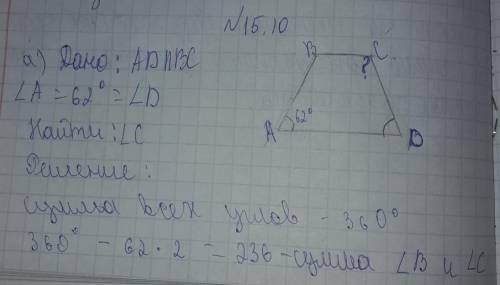 №15.10
а) Дано: AD||BC
∠A = 62° = ∠D
Найти: ∠C
Решение:
сумма всех углов - 360°
360° - 62·2 = 236 - сумма ∠B и ∠C
B C
?
A 62° D